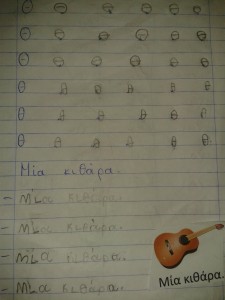 Θ Θ Θ Θ Θ Θ
Θ Θ Θ Θ Θ Θ
Θ Θ Θ Θ Θ Θ
θ θ θ θ θ θ
θ θ θ θ θ θ
θ θ θ θ θ θ
Μία κιθάρα.
- Μία κιθάρα.
- Μία κιθάρα.
- Μία κιθάρα.
- Μία κιθάρα.
Μία κιθάρα.